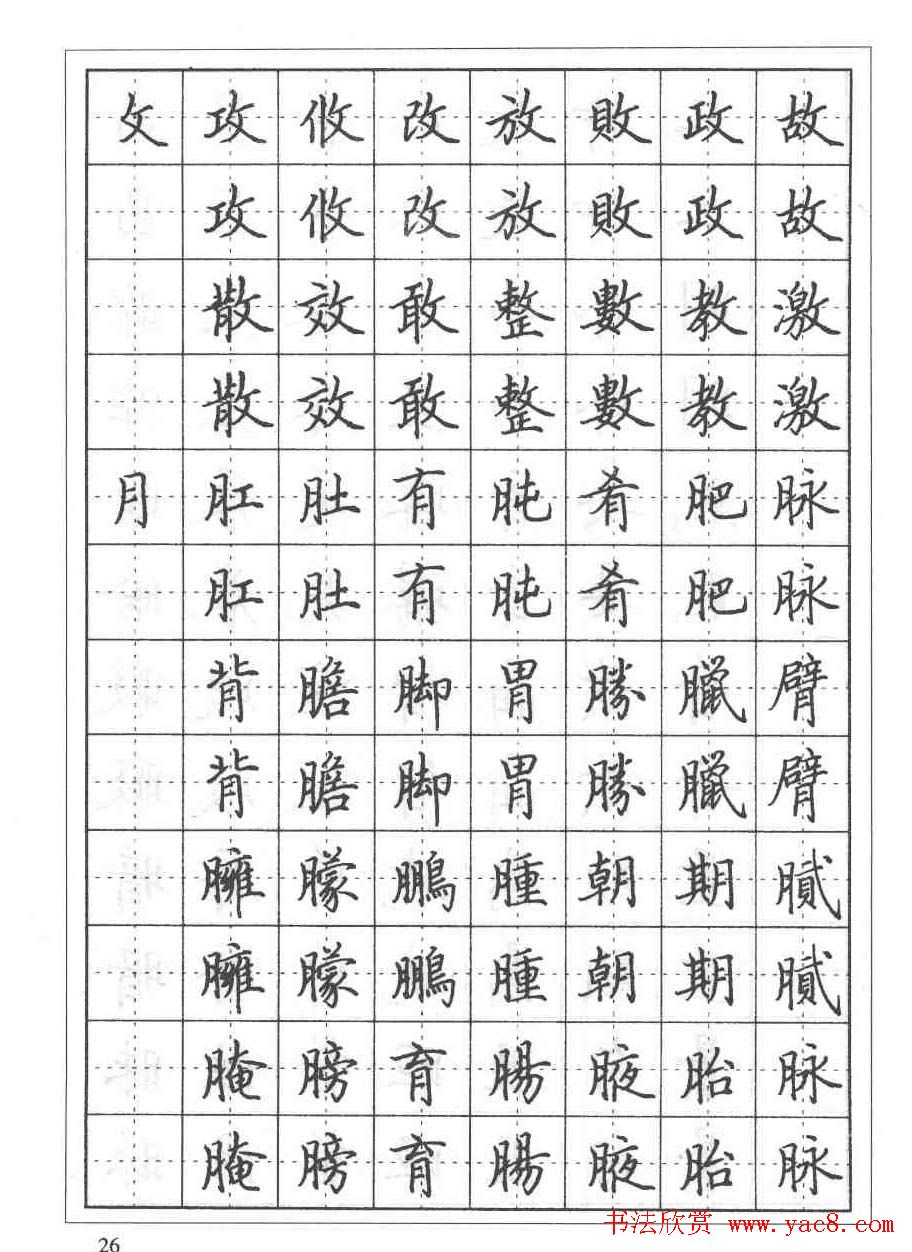 攵 攻 攸 改 放 敗 政 故
攻 攸 改 放 敗 政 故
散 效 敢 整 數 教 激
散 效 敢 整 數 教 激
月 肛 肚 有 肫 肴 肥 脉
肛 肚 有 肫 肴 肥 脉
背 膽 脚 胃 勝 臘 臂
背 膽 脚 胃 勝 臘 臂
臃 朦 鵬 腫 朝 期 膩
臃 朦 鵬 腫 朝 期 膩
腌 膀 育 腸 腋 胎 脉
腌 膀 育 腸 腋 胎 脉
书法欣赏 www.yac8.com
26